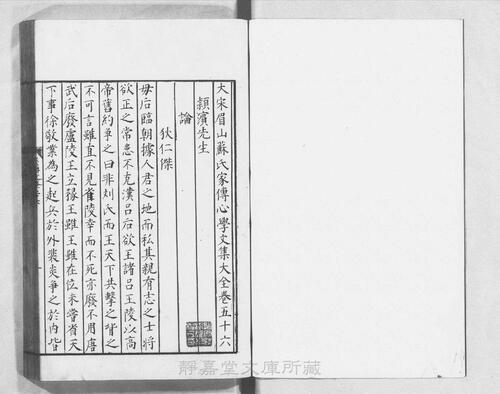 大宋眉山蘇氏家傳心學文集大全卷五十六
頴濱先生
論
狄仁傑
母后臨朝據人君之地而私其親有志之士將
欲正之常患不克漢呂后欲王諸呂王陵以高
帝舊約爭之曰非刘氏而王天下共擊之背之
不可言雖直不見雀陵幸而不死亦廢不用唐
武后廢盧陵王立豫王雖王雖在位未嘗省天
下事徐敬業為之起兵於外裴炎爭之於內皆
靜嘉堂文庫所藏